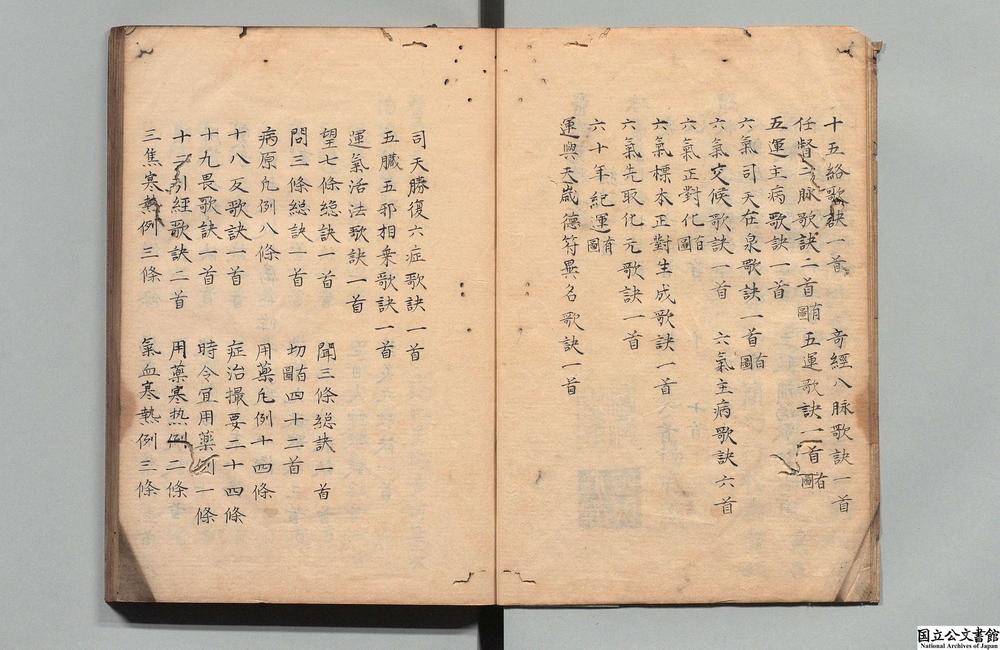 十五絡歌訣一首 奇經八脉歌訣一首
任督二脉歌訣二首有圖 五運歌訣一首有圖
五運主病歌訣一首
六氣司天在泉歌訣一首有圖
六氣交候歌訣一首 六氣主病歌訣六首
六氣正對化有圖
六氣標本正對生成歌訣一首
六氣先取化元歌訣一首
六十年紀運有圖
運與天歲德符異名歌訣一首
司天勝復六症歌訣一首
五臟五邪相乗歌訣一首
運氣活法歌訣一首
望七條總訣一首 聞三條總訣一首
問三條総訣一首 切有圖四十二首
病原凡例八條 用藥凡例十四條
十八反歌訣一首 症治撮要二十四條
十九畏歌訣一首 時令宜用藥例一條
十二引經歌訣二首 用藥寒热例二條
三焦寒熱例三條 氣血寒熱例三條
国立公文書館
National Archives of Japan